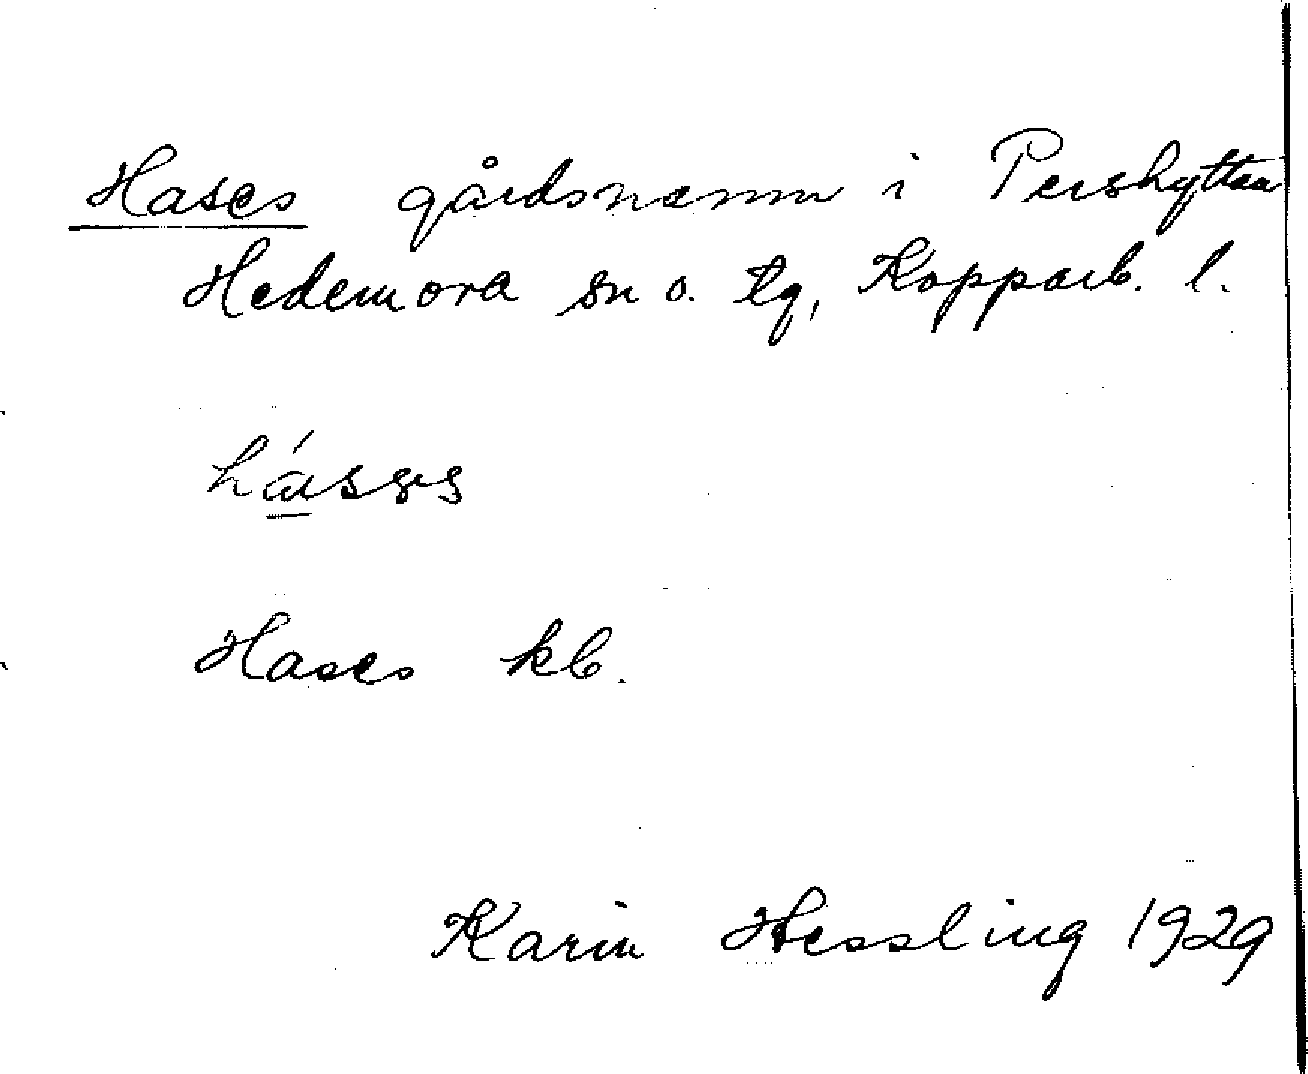 Hases gårdsnamn i Pershyttan
Hedemora sn o. tg, Kopparb. l.
hásəs
Hases kb.
Karin Hessling 1929